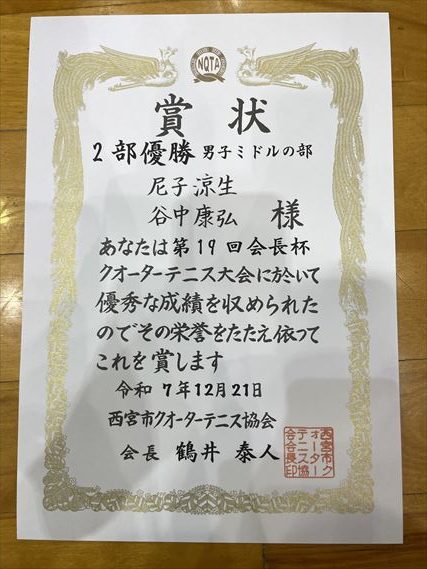 NQTA
賞状
2部優勝 男子ミドルの部
尼子涼生
谷中康弘 様
あなたは第19回会長杯
クオーターテニス大会に於いて
優秀な成績を収められた
のでその栄誉をたたえ依って
これを賞します
令和 7年12月21日
西宮市クオーターテニス協会
会長 鶴井 泰人
西宮市ク
ォーター
テニス協
会会長印